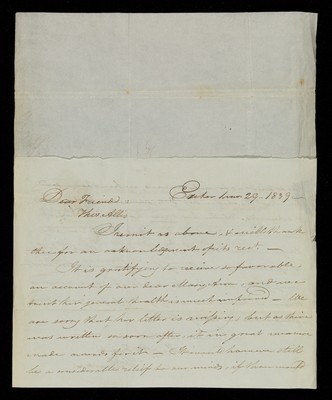 Exeter 29 1839.
Dear Friend,
Tho's Allis
I remit as above, & will thank
thee for an acknowledgment of its rect. —
It is gratifying to receive so favorable
an account of our dear Mary Ann, and we
trust her general health is much improved — We
are sorry that her letter is missing, but as thine
was written so soon after, it in great measure
made amends for it — It would however still
be a considerable relief to our minds, if thou could